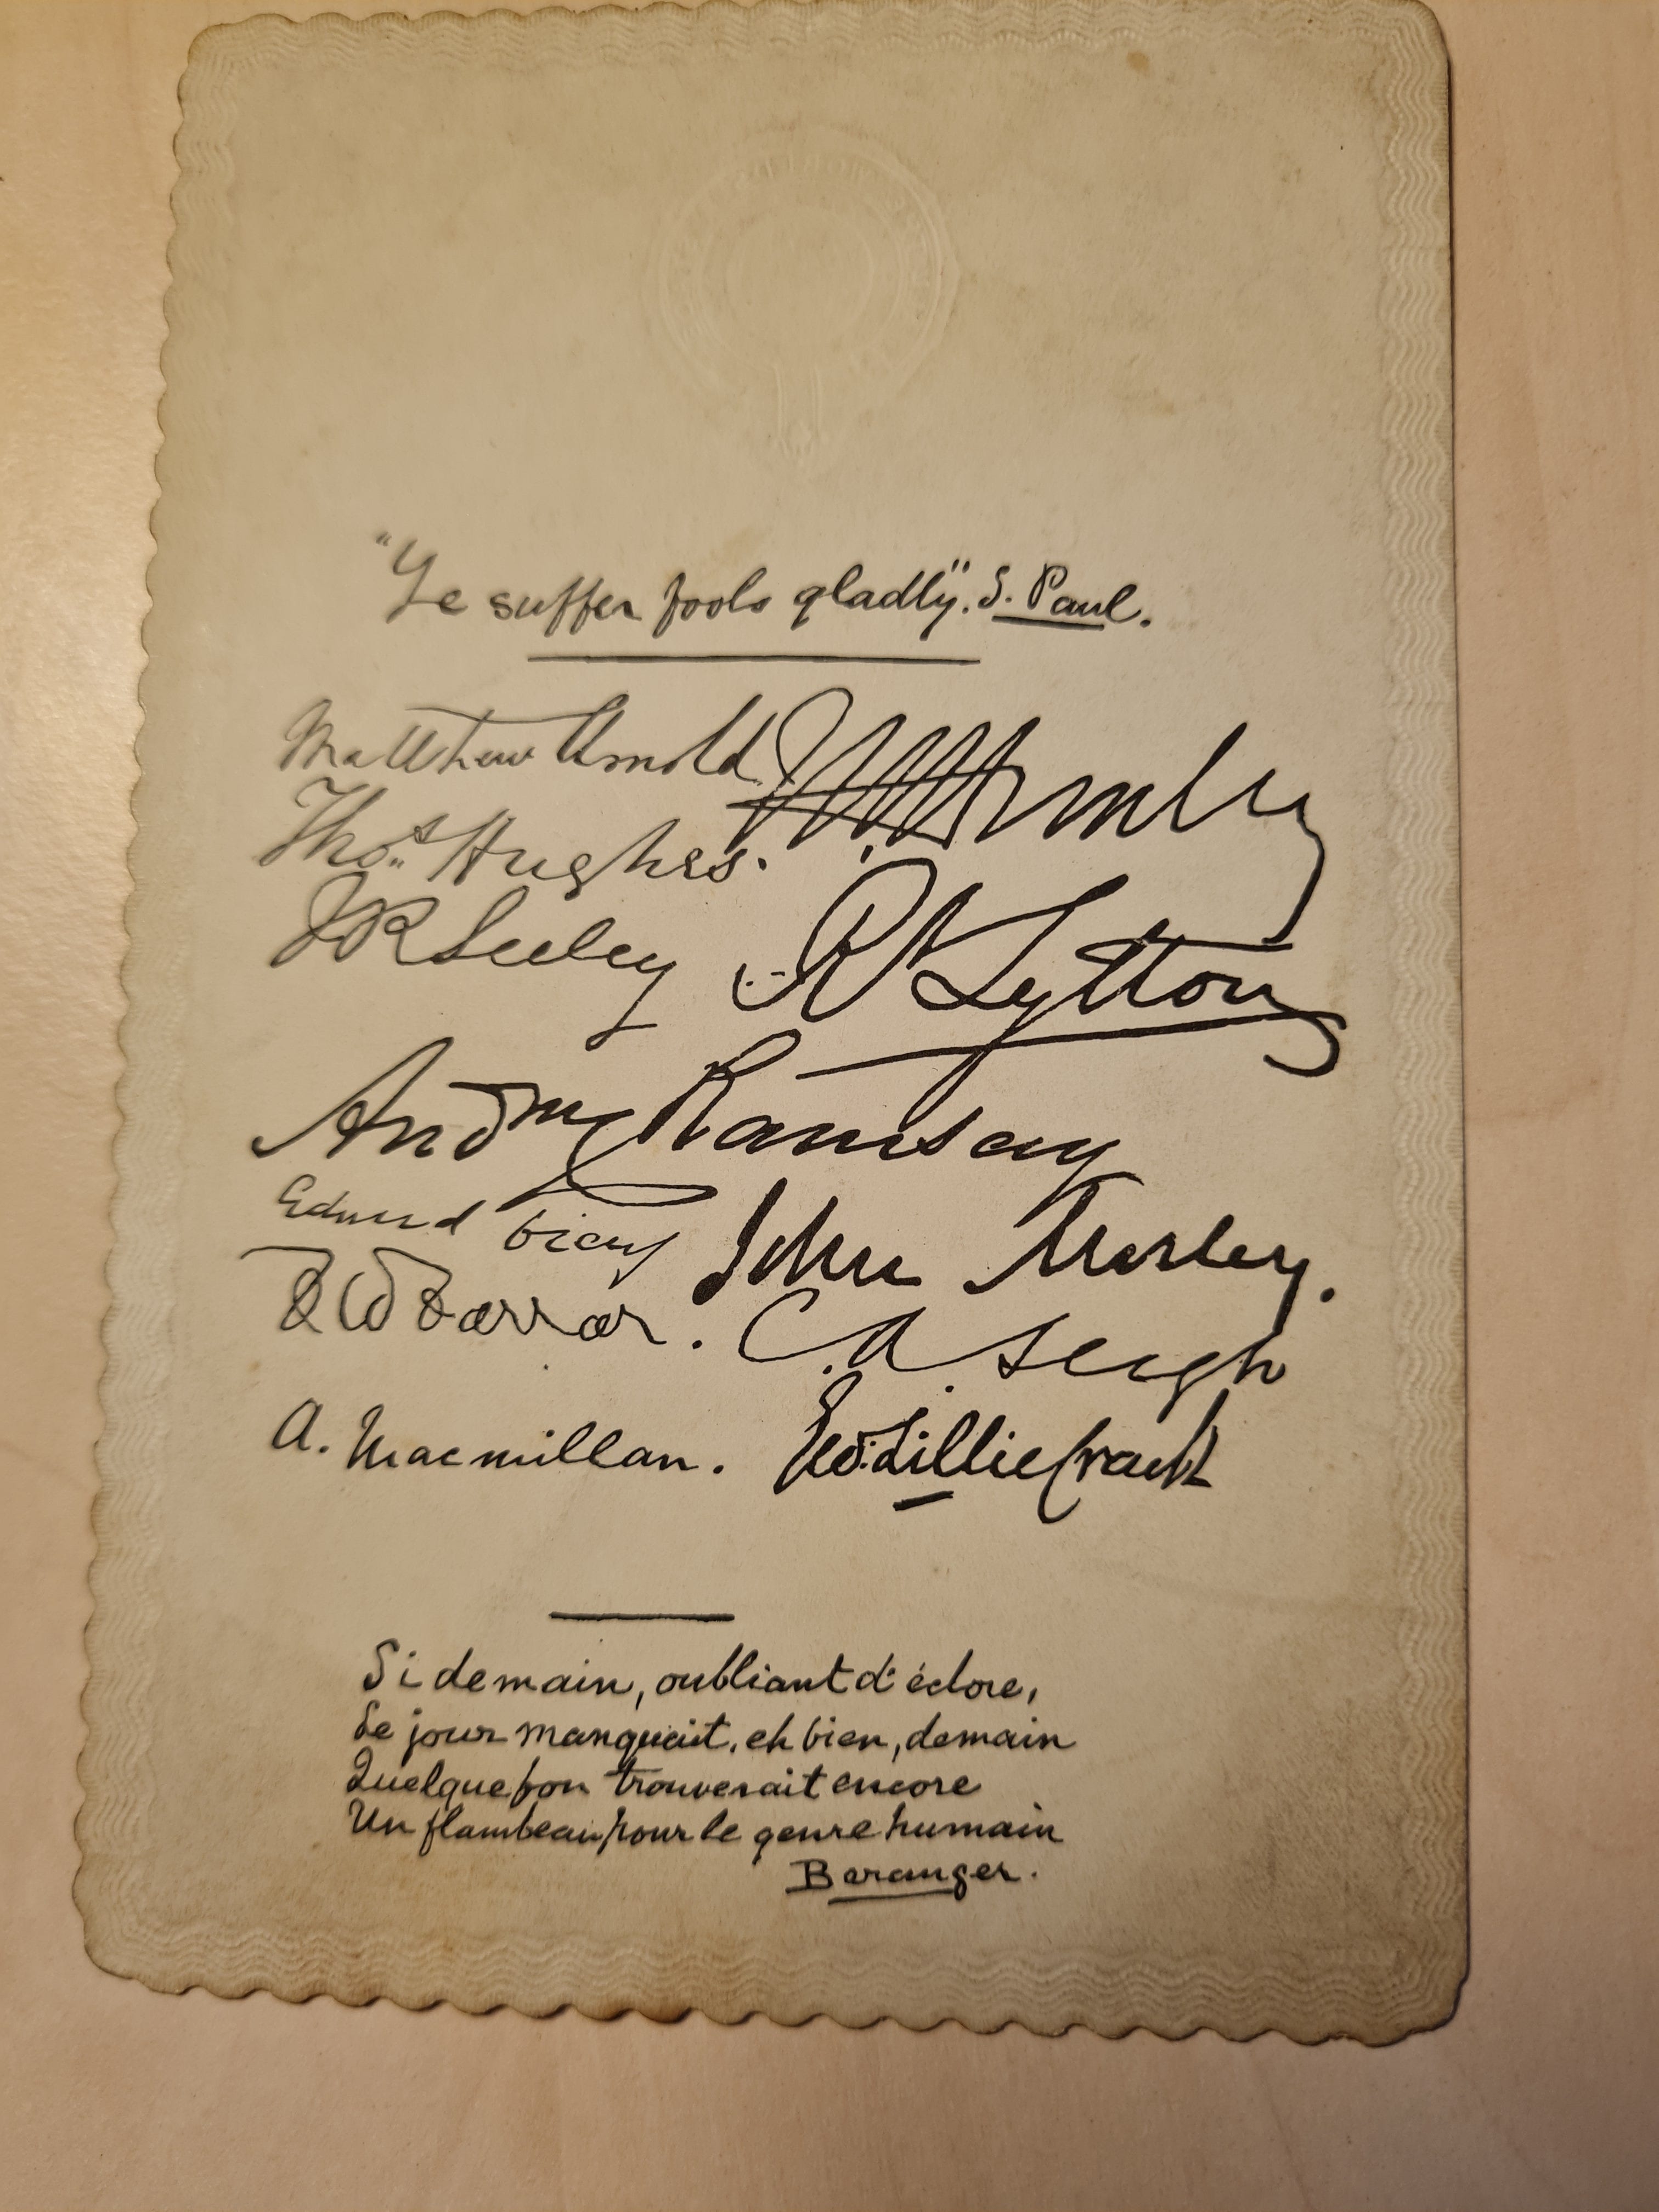 "Ye suffer fools gladly". S. Paul.
Matthew Arnold
Thos. Hughes.
JR Seeley R Lytton
Andw Ramsay
John Morley.
FW Farrar.
A. Macmillan. Ed: Lillie Craik
Si demain, oubliant d'éclore,
Le jour manquait, eh bien, demain
Quelque fou trouverait encore
Un flambeau pour le genre humain
Beranger.